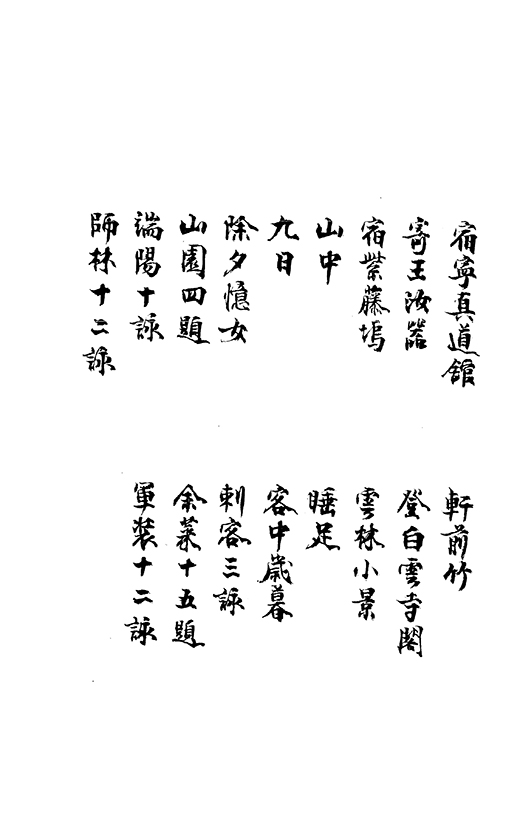 宿寧真道館
軒前竹
寄王汝器
登白雲寺閣
宿紫藤塢
雲林小景
山中
睡足
九日
客中歲暮
除夕憶女
刺客三詠
山園四題
余菜十五題
端陽十詠
軍装十二詠
師林十二詠